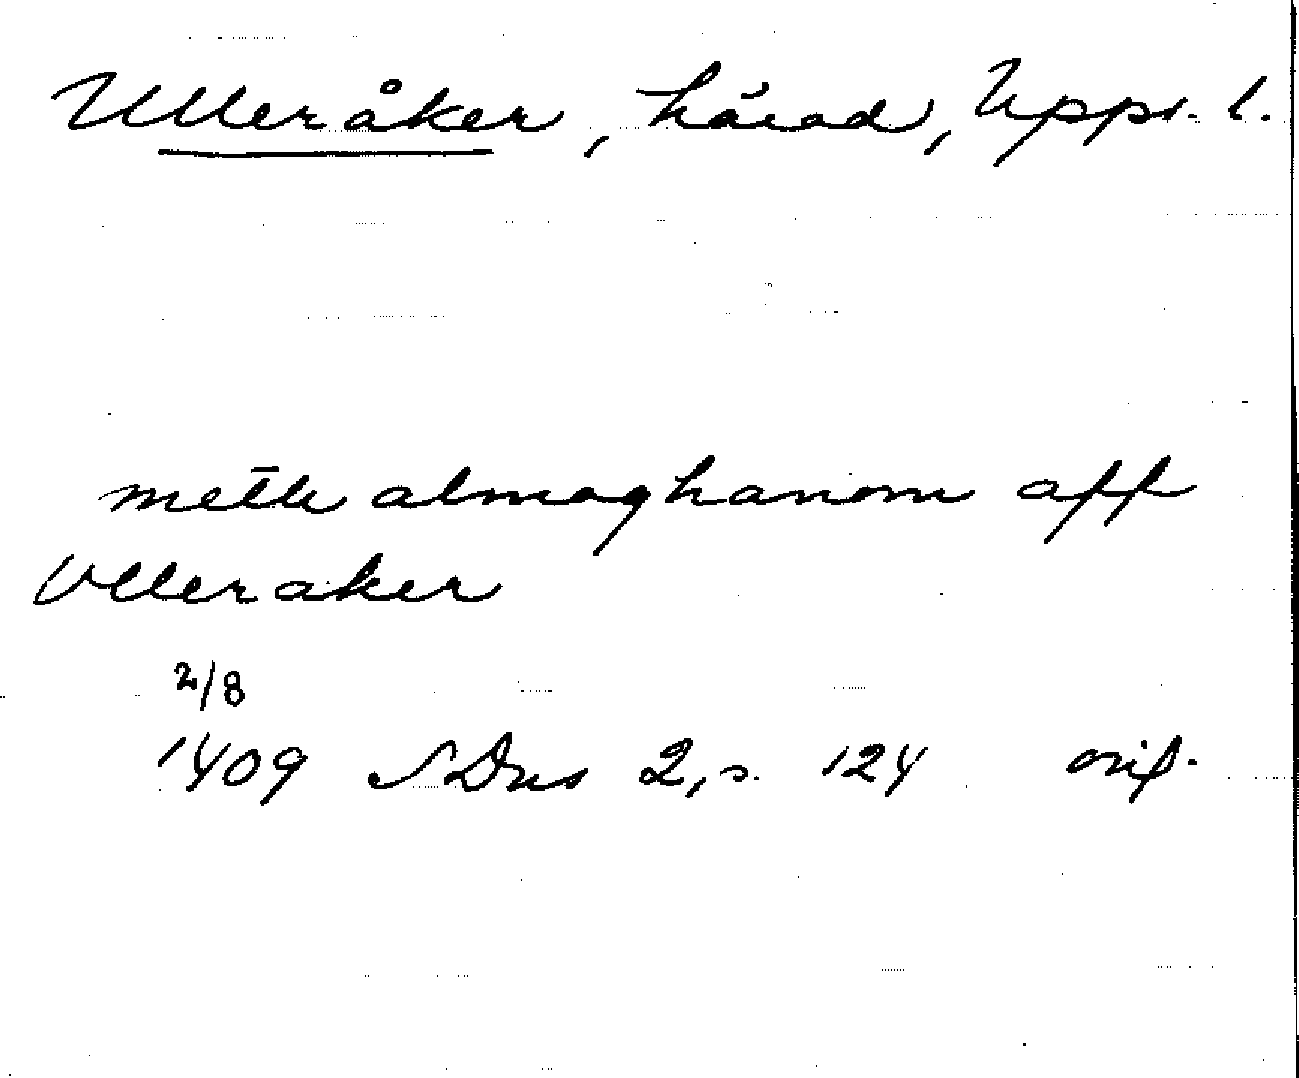 Ulleråker, härad, Upps. l.
meth almoghanom aff
Vlleraker
2/8
1409 SDns 2, s. 124 orig.